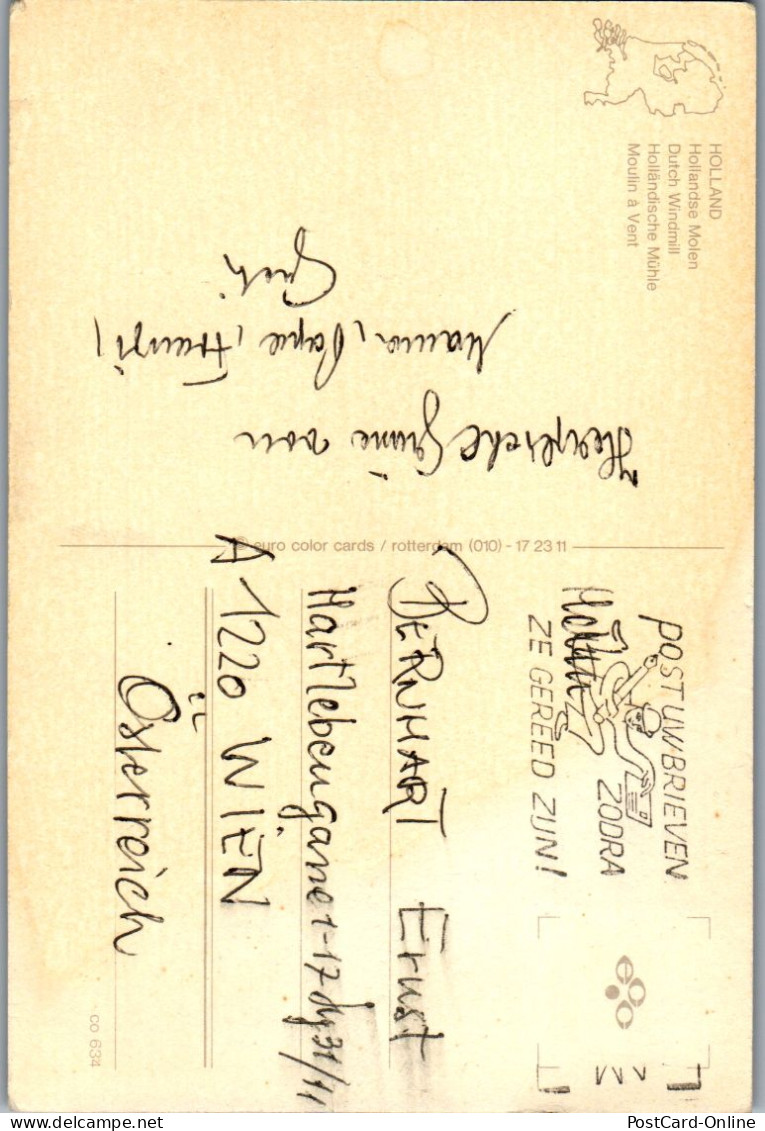 HOLLAND
Hollandse Molen
Dutch Windmill
Holländische Mühle
Moulin à Vent
Grüße von
Mama, Papa, Franzi,
Greti
© euro color cards / rotterdam (010) - 17 23 11
POST UW BRIEVEN
ZODRA
ZE GEREED ZIJN!
BERNHART Ernst
Hartlebengasse 1-17
A 1220 WIEN
Österreich
co 634
PostCard-Online